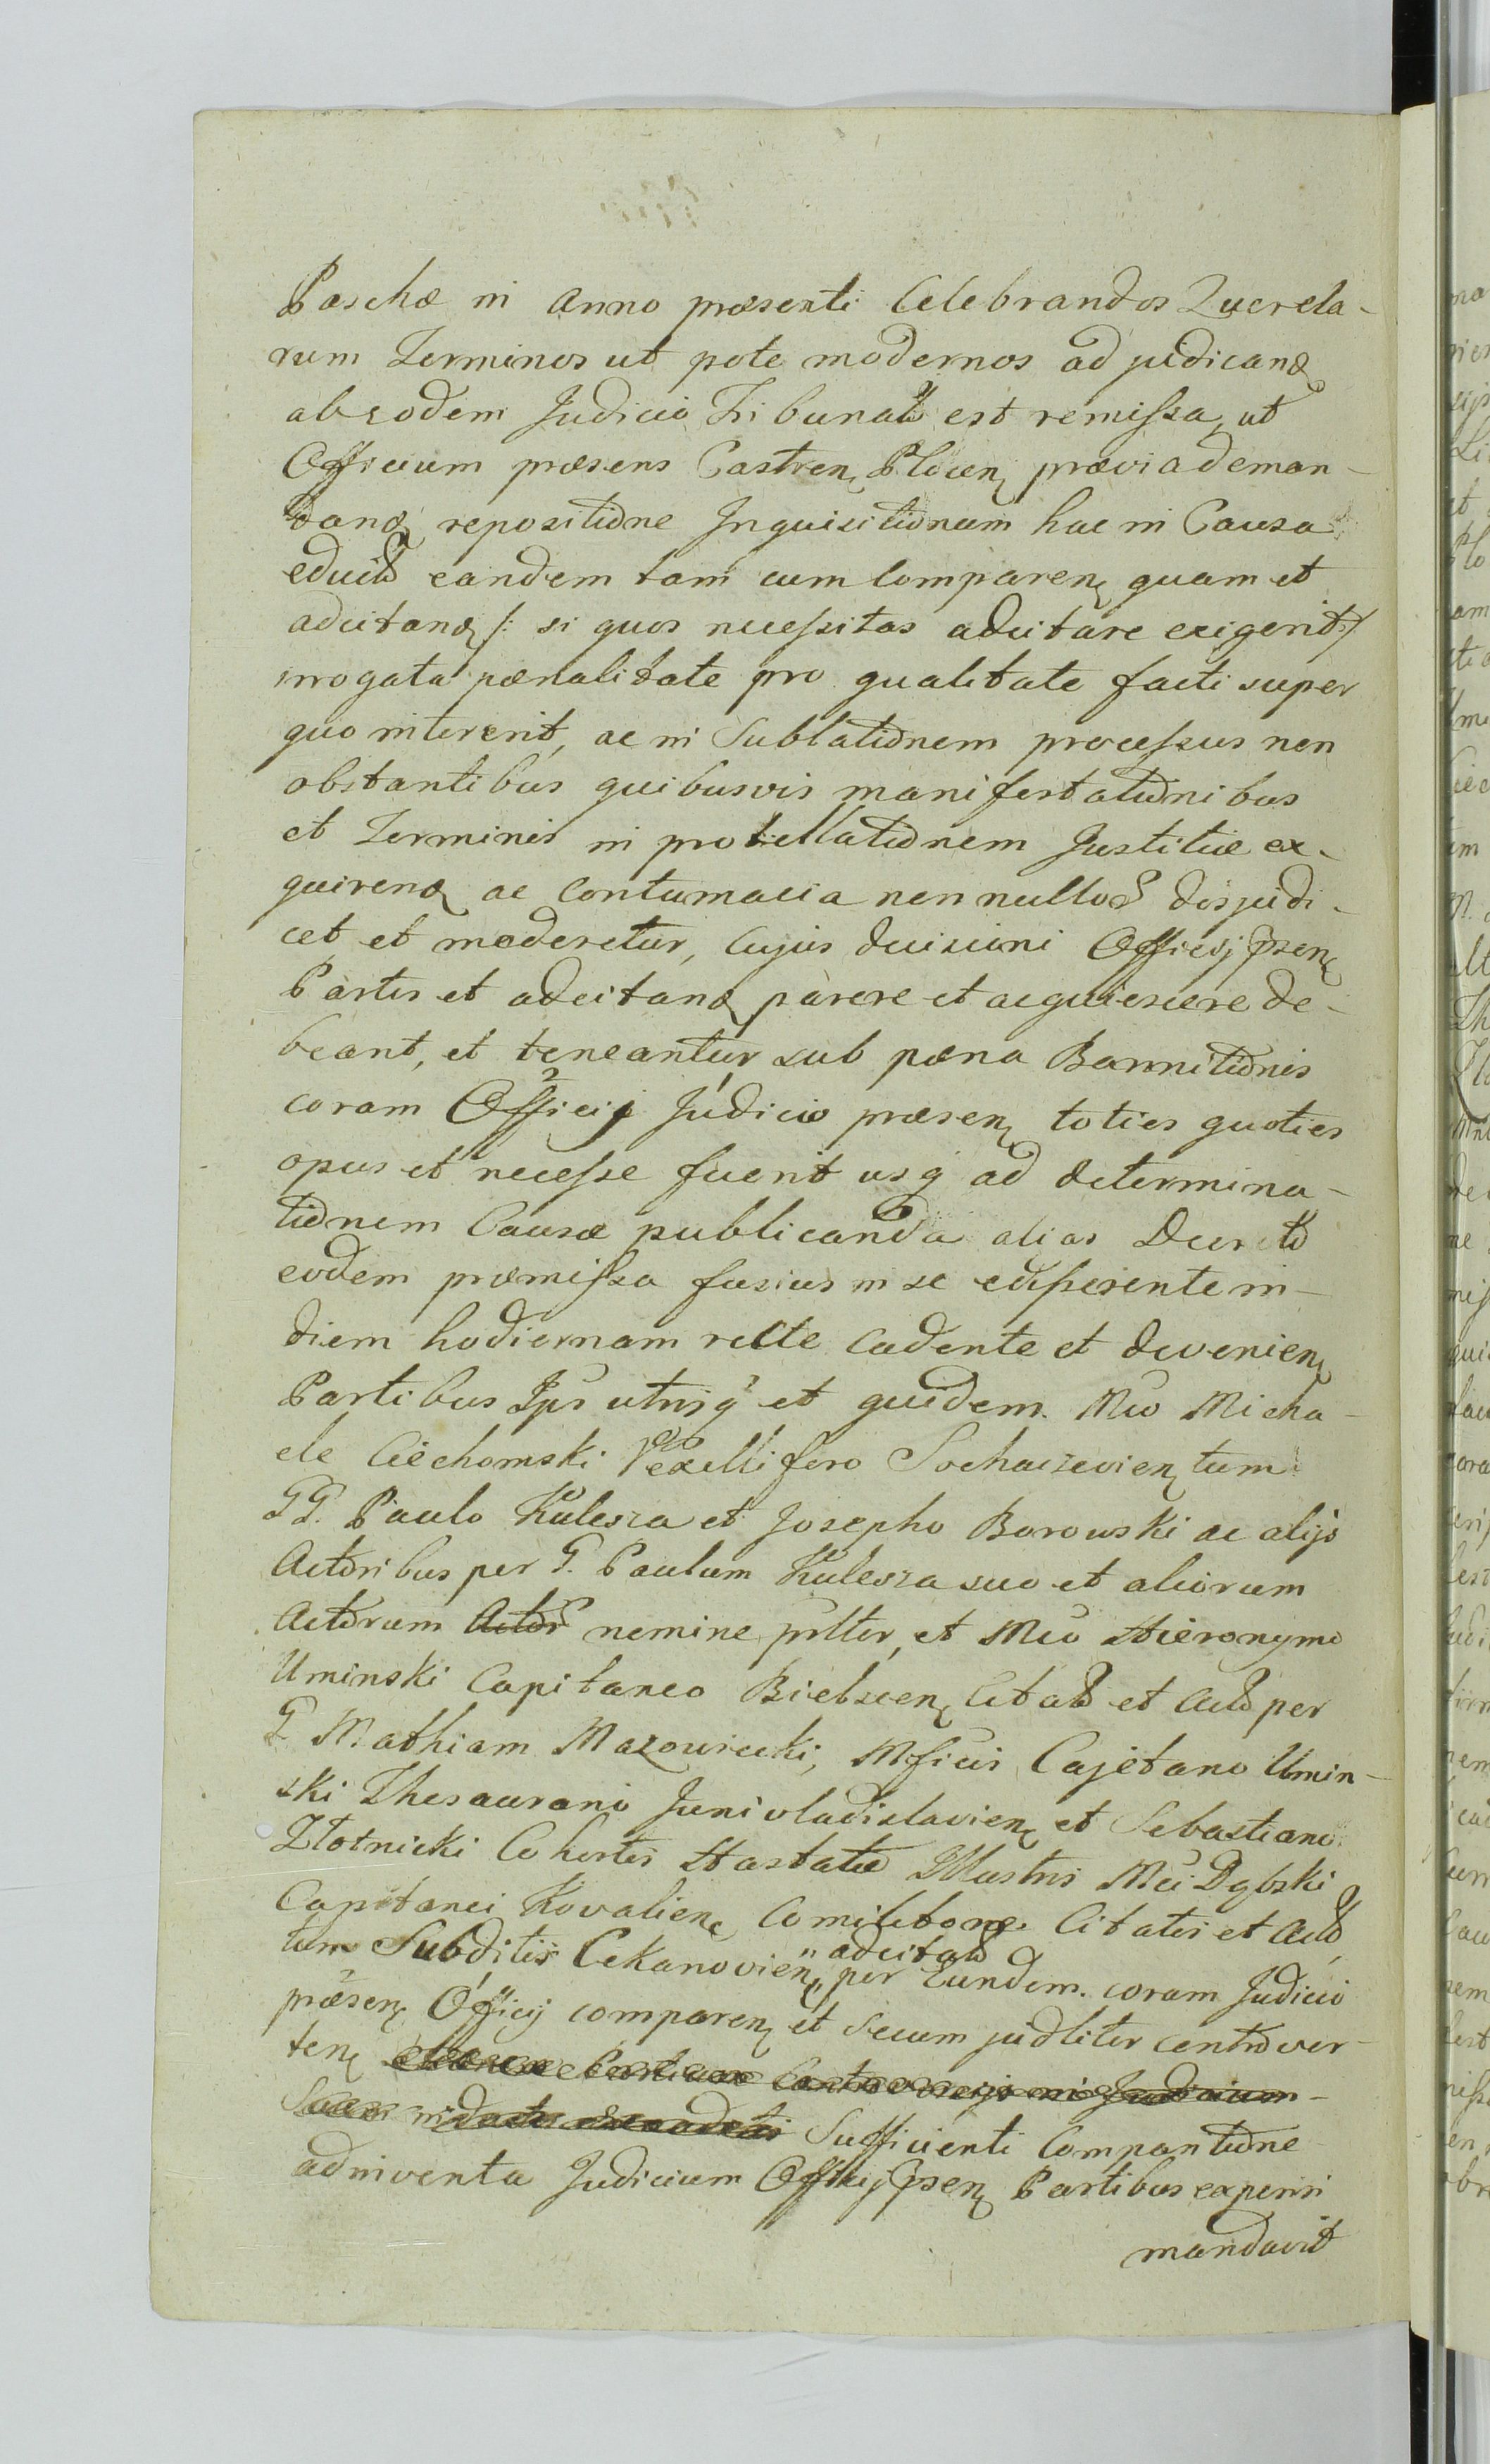 Paschæ in Anno præsenti Celebrandos Querela-
rum Terminos ut pote modernos ad judicand
ab eodem Judicio Tribunali est remissa, ut
Officium præsens Castren Plocen prævia deman-
dand repositione Inquisitionum hac in Causa
educt eandem tam cum Comparen quam et
adcitand /: si quos necessitas adcitare exigerit :/
irrogata pœnalitate pro qualitate facti super
quo intererit, ac in Sublationem processus non
obstantibus quibusvis manifestationibus
et Terminis in protellationem Justitiæ ex-
quirend ac Contumacia non nullor disjudi-
cet et moderetur, Cujus decisioni Officij Psen
Partes et adcitand parere et acquiescere de-
beant, et teneantur sub pœna Bannitionis
coram Officij Judicio præsen toties quoties
opus et necesse fuerit usq ad determina-
tionem Causæ publicanda alias Decreto
eodem præmissa fusius in se edisserente in-
diem hodiernam recte Cadente et devenien
Partibus Ips utrisq et quidem Mco Micha-
ele Ciechomski Vexillifero Sochaczevien tum
GG. Paulo Kulesza et Josepho Borowski ac alijs
Actoribus per G. Paulum Kulesza suo et aliorum
Actorum Actor nemine psltter, et Mco Hieronymo
Uminski Capitaneo Bielscen Citato et Actt per
G Mathiam Mazowiecki, Mficis Cajetano Umin-
ski Thesaurario Junivladislavien et Sebastiano
Złotnicki Cohortis Hastatæ Illustris Mci Dąbski
Capitanei Kovalien Comilitone Citatis et Actt
tum Subditis Cekanovien adcitatt per Eundem coram Judicio
præsen Officij comparen et secum judliter controver-
ten
Sufficienti Comparitione
adinventa Judicium Officij Psen Partibus experiri
mandavit